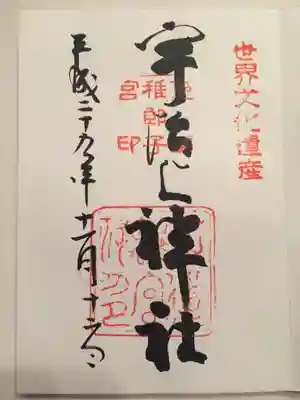 世界文化遺産
宇治上神社
稚郎子
宮印
平成二十九年十一月十六日